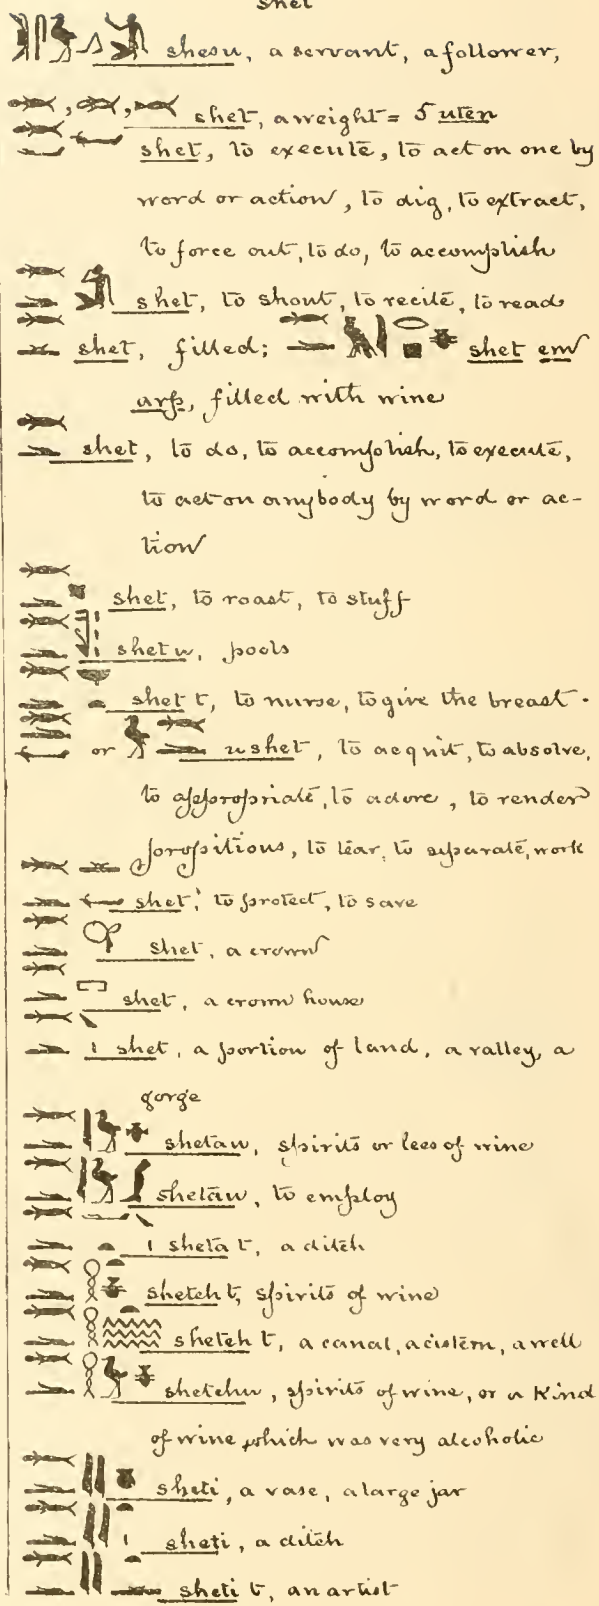 shet
shesu, a servant, a follower,
shet, a weight = 5 uten
shet, to execute, to act on one by
word or action, to dig, to extract,
to force out, to do, to accomplish
shet, to shout, to recite, to read
shet, filled; shet em
arp, filled with wine
shet, to do, to accomplish, to execute,
to act on anybody by word or ac-
tion
shet, to roast, to stuff
shetu, pools
shet t, to nurse, to give the breast.
or ushet, to acquit, to absolve,
to appropriate, to adore, to render
propitious, to tear, to separate, work
shet, to protect, to save
shet, a crown
shet, a crown house
shet, a portion of land, a valley, a
gorge
shetau, spirits or lees of wine
shetau, to employ
sheta t, a ditch
sheteh t, spirits of wine
sheteh t, a canal, a cistern, a well
shetehu, spirits of wine, or a kind
of wine which was very alcoholic
sheti, a vase, a large jar
sheti, a ditch
sheti t, an artist